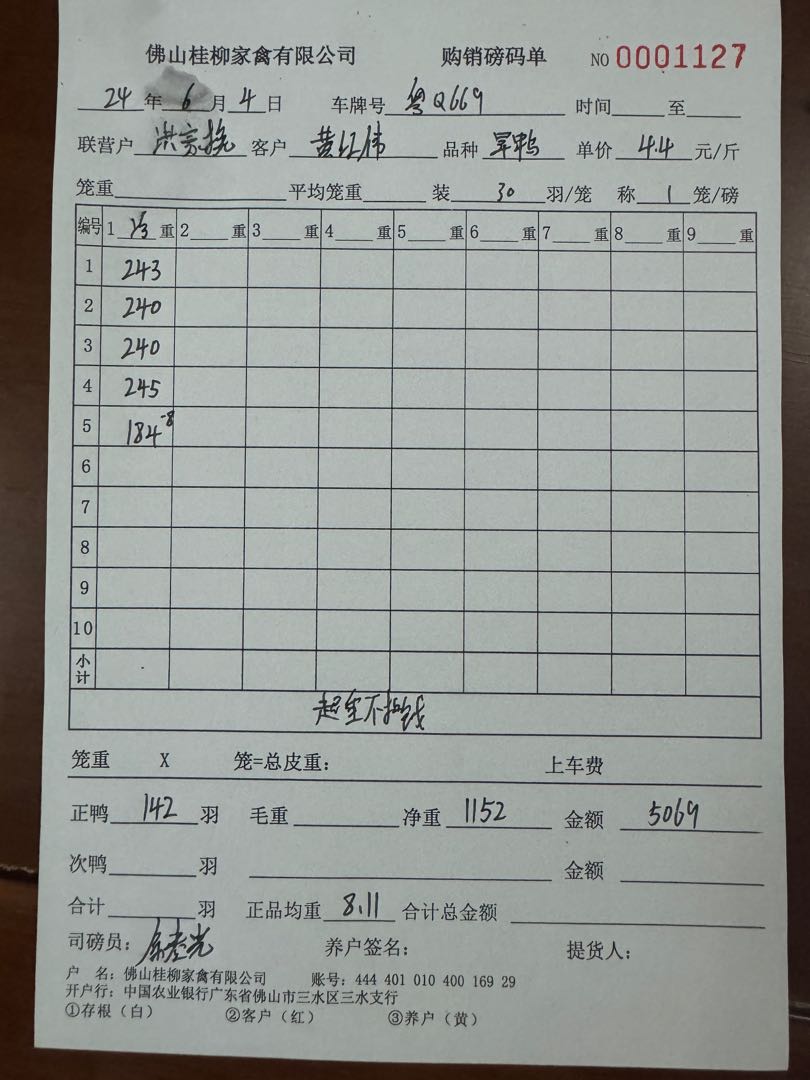 佛山桂柳家禽有限公司 购销磅码单 NO 0001127
24 年 6 月 4 日 车牌号 粤Q669 时间 至
联营户 洪 客户 黄红伟 品种 旱鸭 单价 4.4 元/斤
笼重 平均笼重 装 30 羽/笼 称 1 笼/磅
编号 1 1/3 重 2 重 3 重 4 重 5 重 6 重 7 重 8 重 9 重
1 243
2 240
3 240
4 245
5 184-8
6
7
8
9
10
小计
超重不扣钱
笼重 X 笼=总皮重: 上车费
正鸭 142 羽 毛重 净重 1152 金额 5069
次鸭 羽 金额
合计 羽 正品均重 8.11 合计总金额
司磅员: 养户签名: 提货人:
户 名: 佛山桂柳家禽有限公司 账号: 444 401 010 400 169 29
开户行: 中国农业银行广东省佛山市三水区三水支行
①存根(白) ②客户(红) ③养户(黄)